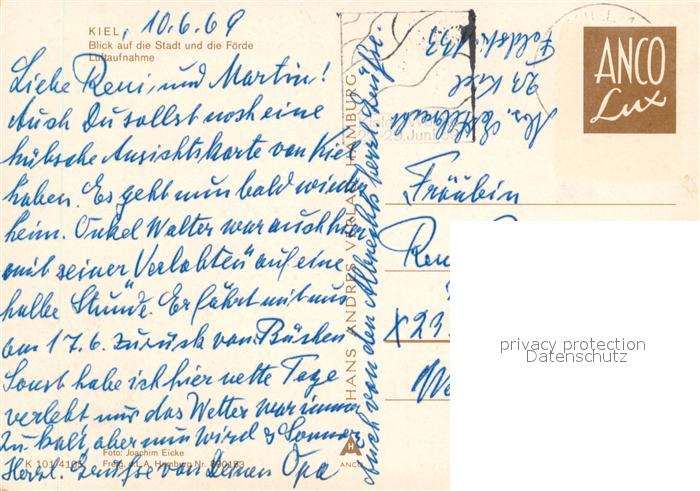 KIEL, 10.6.69
Blick auf die Stadt und die Förde
Luftaufnahme
Liebe Reni, und Martin!
Auch Du sollst noch eine
hübsche Ansichtskarte von Kiel
haben. Es geht nun bald wieder
heim. Onkel Walter war auch hier
mit "seiner Verlobten" auf eine
halbe Stunde. Er fährt mit uns
am 17.6. zurück von
Sonst habe ich hier nette Tage
verlebt nur das Wetter war immer
zu kalt, aber nun wird es Sommer
Herzl. Grüße von Deinem Opa
Foto: Joachim Eicke
K 101/
Freig. d. LA Hamburg Nr.
ANCO
HANS ANDRES VERLAG HAMBURG
Auch von den Albrechts herzl. Grüße.
Abs. Albrecht
23 Kiel
Feldstr. 133
ANCO
Lux
Fräulein
Reni
X 23
privacy protection
Datenschutz